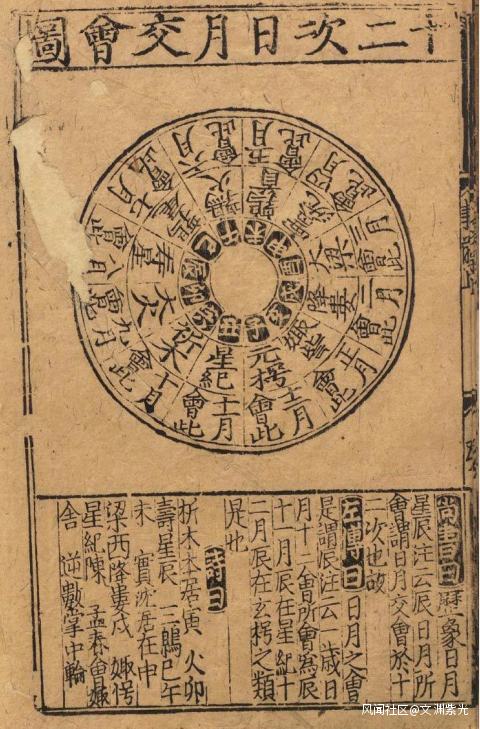 十二次日月交會圖
子 元枵 十二月會此
丑 星紀 十一月會此
寅 析木 十月會此
卯 大火 九月會此
辰 壽星 八月會此
巳 鶉尾 七月會此
午 鶉火 六月會此
未 鶉首 五月會此
申 實沈 四月會此
酉 大梁 三月會此
戌 降婁 二月會此
亥 娵訾 正月會此
尚書曰曆象日月
星辰注云辰日月所
會謂日月交會於十
二次也故
左傳曰日月之會
是謂辰注云一歲日
月十二會所會為辰
十一月辰在星紀十
二月辰在玄枵之類
是也
詩曰
析木本居寅 火卯
壽星辰 三鶉巳午
未 實沈居在申
梁酉降婁戌 娵
星紀陳 孟春會娵
舍 逆數掌中輪
风闻社区@文渊紫光